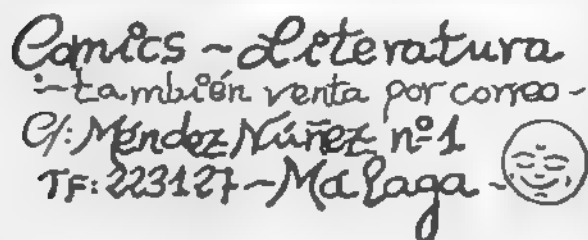 Comics ~ Literatura
~ también venta por correo ~
C/: Méndez Núñez nº 1
TF: 223127 ~ Málaga ~